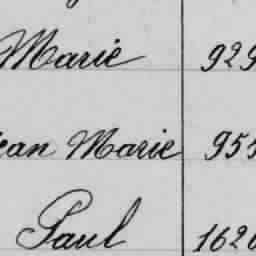 Marie 929
ean Marie 955
Paul 1620